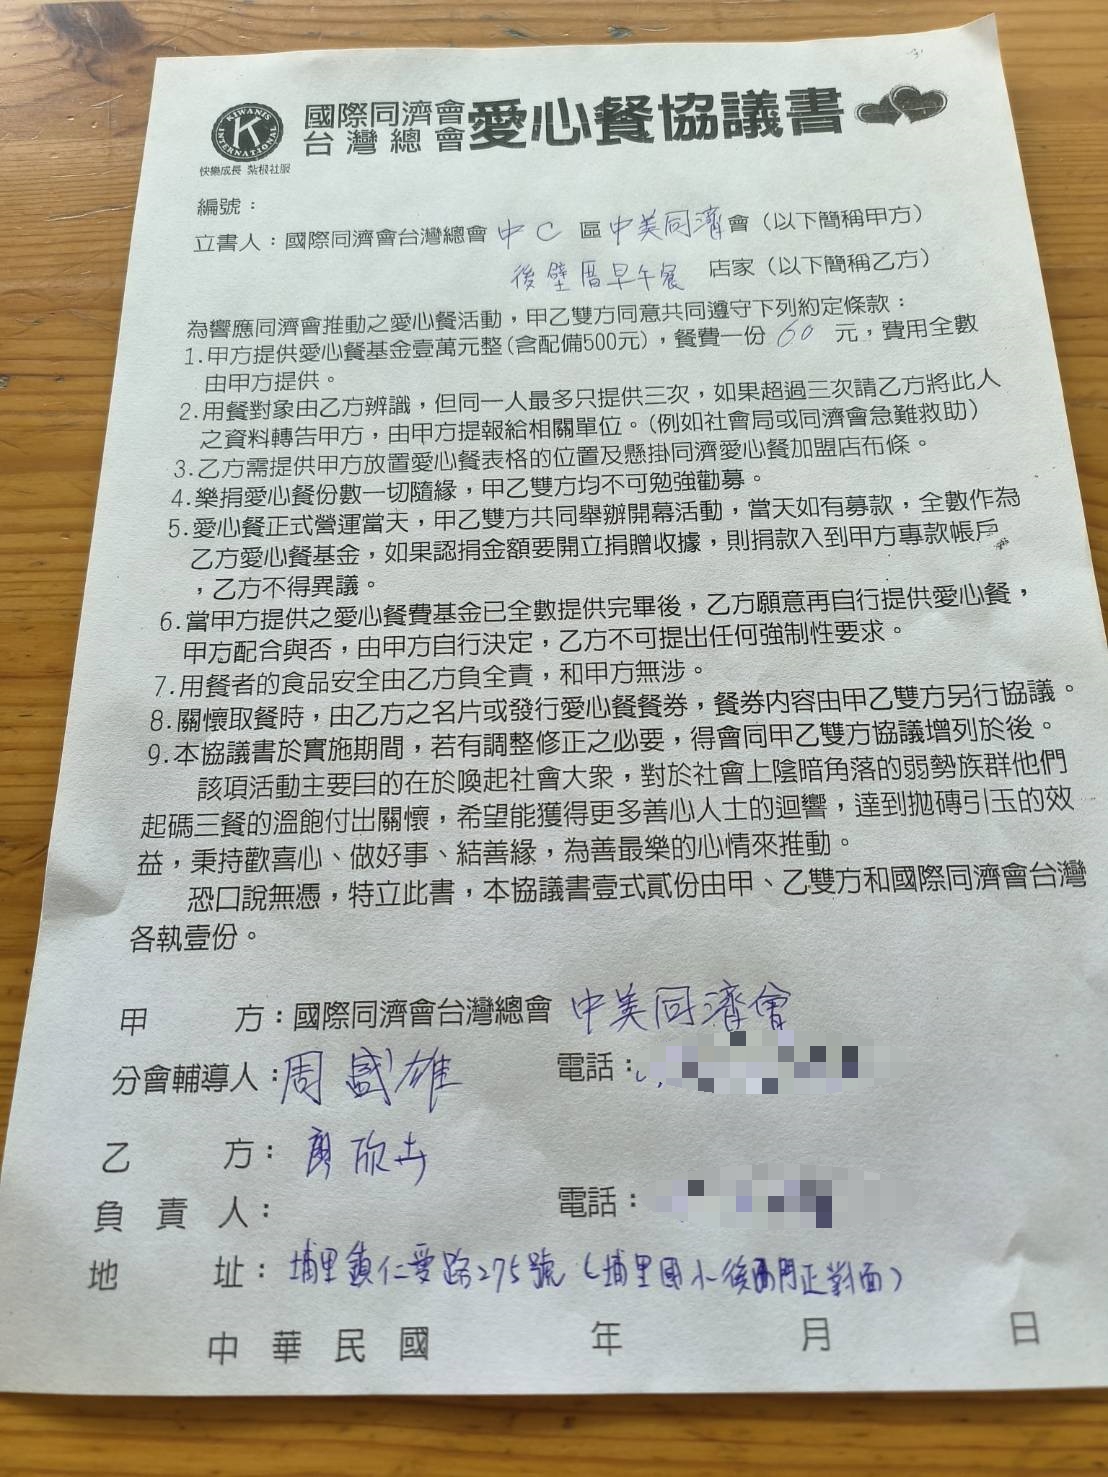 KIWANIS INTERNATIONAL
K
快樂成長 紮根社服
國際同濟會
台灣總會
愛心餐協議書
編號：
立書人：國際同濟會台灣總會 中C 區 中美同濟 會（以下簡稱甲方）
後壁厝早午餐 店家（以下簡稱乙方）
為響應同濟會推動之愛心餐活動，甲乙雙方同意共同遵守下列約定條款：
1.甲方提供愛心餐基金壹萬元整(含配備500元)，餐費一份 60 元，費用全數
由甲方提供。
2.用餐對象由乙方辨識，但同一人最多只提供三次，如果超過三次請乙方將此人
之資料轉告甲方，由甲方提報給相關單位。(例如社會局或同濟會急難救助)
3.乙方需提供甲方放置愛心餐表格的位置及懸掛同濟愛心餐加盟店布條。
4.樂捐愛心餐份數一切隨緣，甲乙雙方均不可勉強勸募。
5.愛心餐正式營運當天，甲乙雙方共同舉辦開幕活動，當天如有募款，全數作為
乙方愛心餐基金，如果認捐金額要開立捐贈收據，則捐款入到甲方專款帳戶
，乙方不得異議。
6.當甲方提供之愛心餐費基金已全數提供完畢後，乙方願意再自行提供愛心餐，
甲方配合與否，由甲方自行決定，乙方不可提出任何強制性要求。
7.用餐者的食品安全由乙方負全責，和甲方無涉。
8.關懷取餐時，由乙方之名片或發行愛心餐餐券，餐券內容由甲乙雙方另行協議。
9.本協議書於實施期間，若有調整修正之必要，得會同甲乙雙方協議增列於後。
該項活動主要目的在於喚起社會大眾，對於社會上陰暗角落的弱勢族群他們
起碼三餐的溫飽付出關懷，希望能獲得更多善心人士的迴響，達到拋磚引玉的效
益，秉持歡喜心、做好事、結善緣，為善最樂的心情來推動。
恐口說無憑，特立此書，本協議書壹式貳份由甲、乙雙方和國際同濟會台灣
各執壹份。
甲 方：國際同濟會台灣總會 中美同濟會
分會輔導人：周盛雄 電話：
乙 方：廖欣卉
負 責 人： 電話：
地 址：埔里鎮仁愛路275號（埔里國小後門正對面）
中 華 民 國 年 月 日